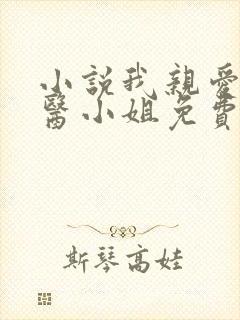 小說我親愛
醫小姐免費
斯琴高娃